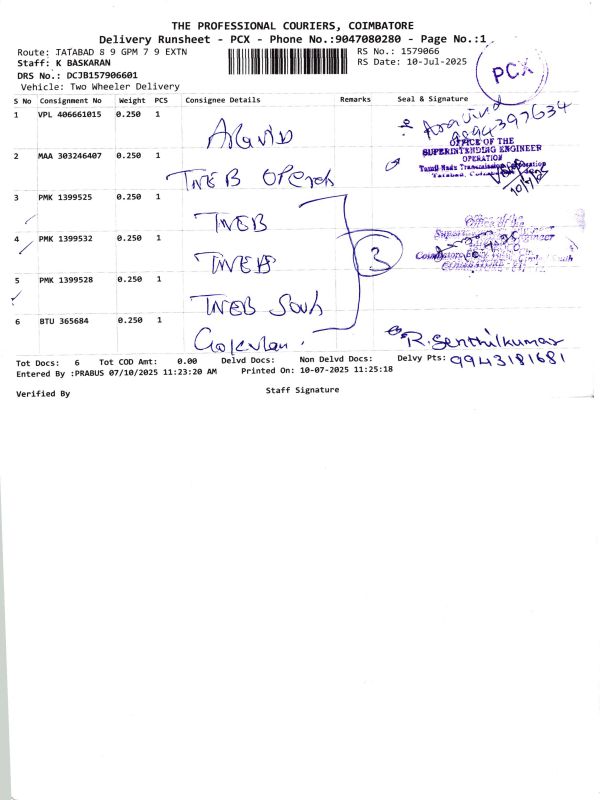 THE PROFESSIONAL COURIERS, COIMBATORE
Delivery Runsheet - PCX - Phone No.:9047080280 - Page No.:1
Route: TATABAD 8 9 GPM 7 9 EXTN
RS No.: 1579066
Staff: K BASKARAN
RS Date: 10-Jul-2025
DRS No.: DCJB157906601
Vehicle: Two Wheeler Delivery
PCX
S No Consignment No Weight PCS Consignee Details Remarks Seal & Signature
1 VPL 406661015 0.250 1 Aravind
9994397634
2 MAA 303246407 0.250 1 TNEB
OFFICE OF THE
SUPERINTENDING ENGINEER
OPERATION
Tamil Nadu Transmission Corporation
3 PMK 1399525 0.250 1 TNEB
Office of the
4 PMK 1399532 0.250 1 TNEB 3
5 PMK 1399528 0.250 1 TNEB South
6 BTU 365684 0.250 1 R. Senthilkumar
9943181681
Tot Docs: 6 Tot COD Amt: 0.00 Delvd Docs: Non Delvd Docs: Delvy Pts:
Entered By :PRABUS 07/10/2025 11:23:20 AM Printed On: 10-07-2025 11:25:18
Verified By
Staff Signature